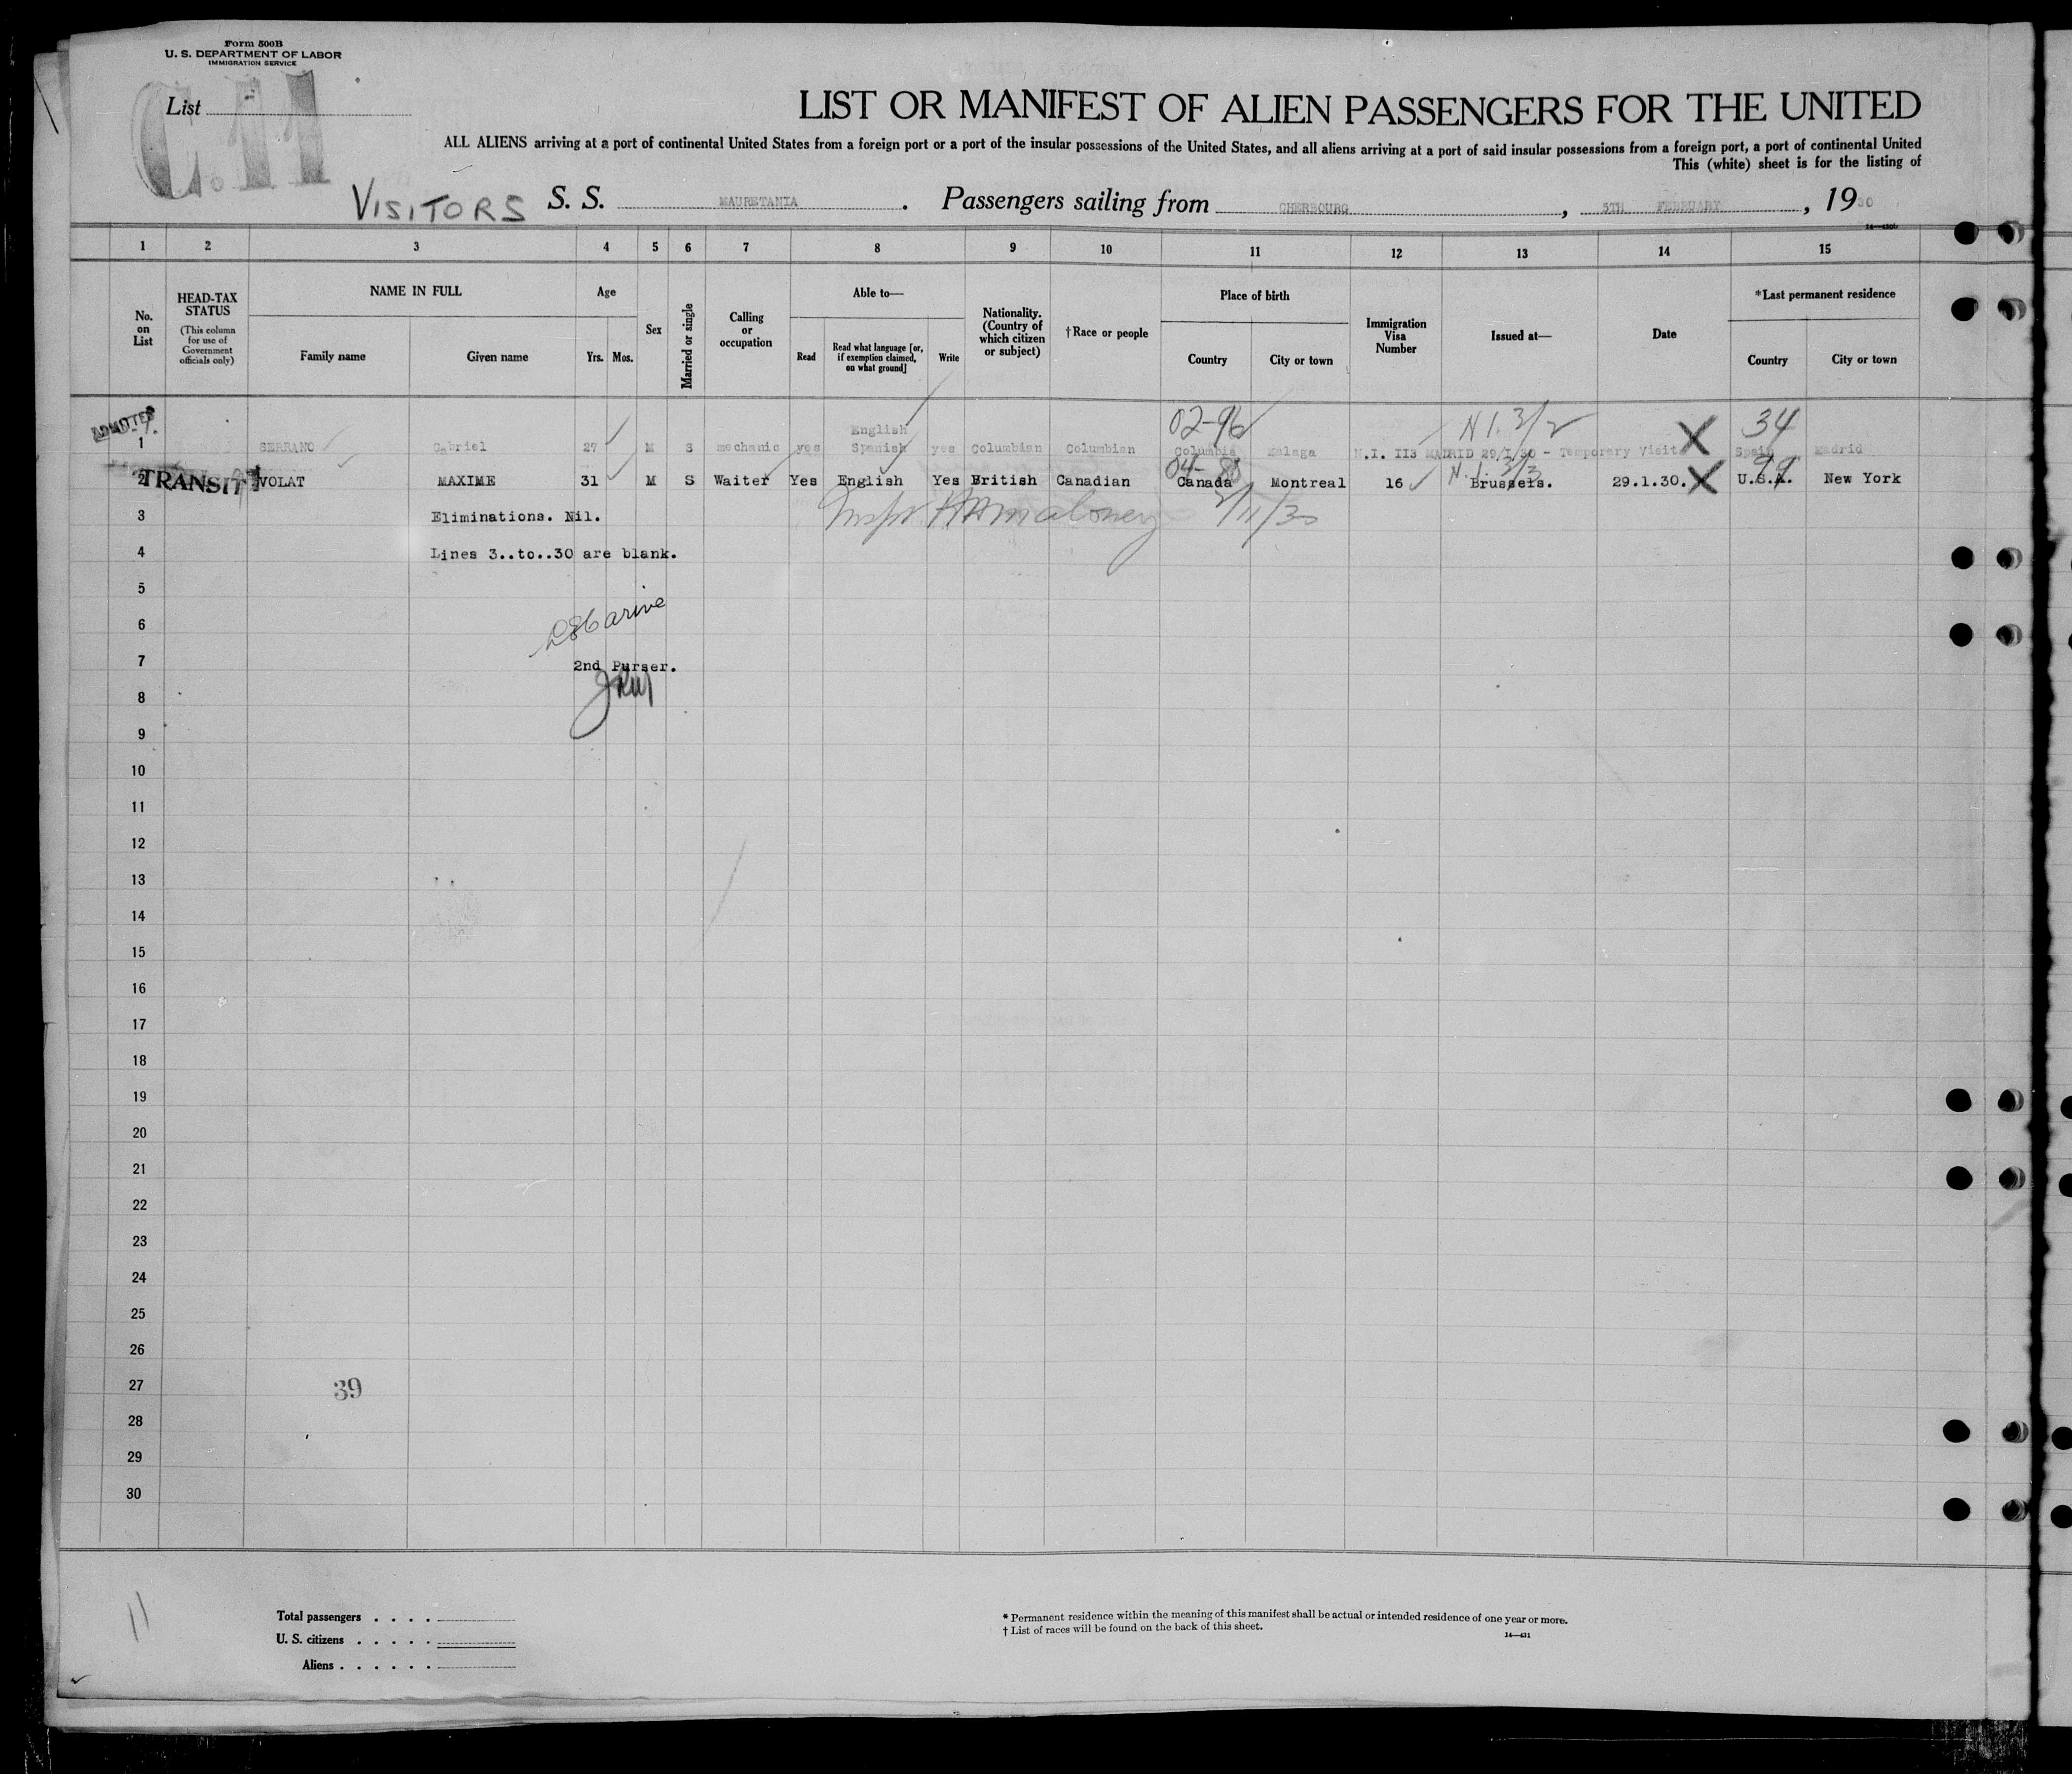 Form 500B
U. S. DEPARTMENT OF LABOR
IMMIGRATION SERVICE
List
C. 11
LIST OR MANIFEST OF ALIEN PASSENGERS FOR THE UNITED
ALL ALIENS arriving at a port of continental United States from a foreign port or a port of the insular possessions of the United States, and all aliens arriving at a port of said insular possessions from a foreign port, a port of continental United
This (white) sheet is for the listing of
VISITORS S. S. MAURETANIA. Passengers sailing from CHERBOURG, 5TH FEBRUARY, 1930
1 2 3 4 5 6 7 8 9 10 11 12 13 14 15
No. on List
HEAD-TAX STATUS (This column for use of Government officials only)
NAME IN FULL
Family name Given name
Age
Yrs. Mos.
Sex
Married or single
Calling or occupation
Able to—
Read Read what language [or, if exemption claimed, on what ground] Write
Nationality. (Country of which citizen or subject)
†Race or people
Place of birth
Country City or town
Immigration Visa Number
Issued at—
Date
*Last permanent residence
Country City or town
ADMITTED 02-96 N I. 3/2 34
1 SERRANO Gabriel 27 M S mechanic yes English Spanish yes Columbian Columbian Columbia Malaga N.I. II3 MADRID 29/I/30 - Temporary Visit X Spain Madrid
04- N.I. 3/3 99
2 TRANSIT VOLAT MAXIME 31 M S Waiter Yes English Yes British Canadian Canada Montreal 16 Brussels. 29.1.30. X U.S.A. New York
3 Eliminations. Nil. 2/11/30
4 Lines 3..to..30 are blank.
5
6
7 2nd Purser.
8
9
10
11
12
13
14
15
16
17
18
19
20
21
22
23
24
25
26
27 39
28
29
30
11
Total passengers . . . .
U. S. citizens . . . . .
Aliens . . . . . .
* Permanent residence within the meaning of this manifest shall be actual or intended residence of one year or more.
† List of races will be found on the back of this sheet.
14—431